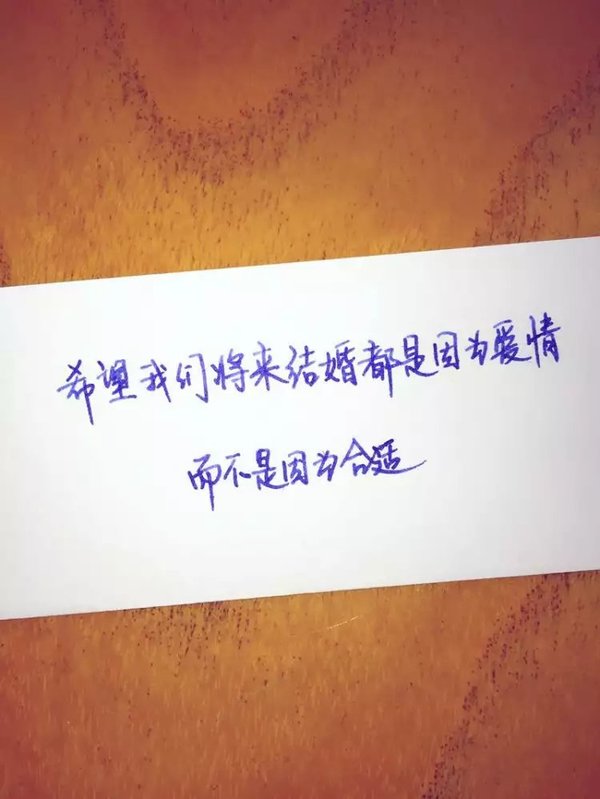 希望我们将来结婚都是因为爱情
而不是因为合适